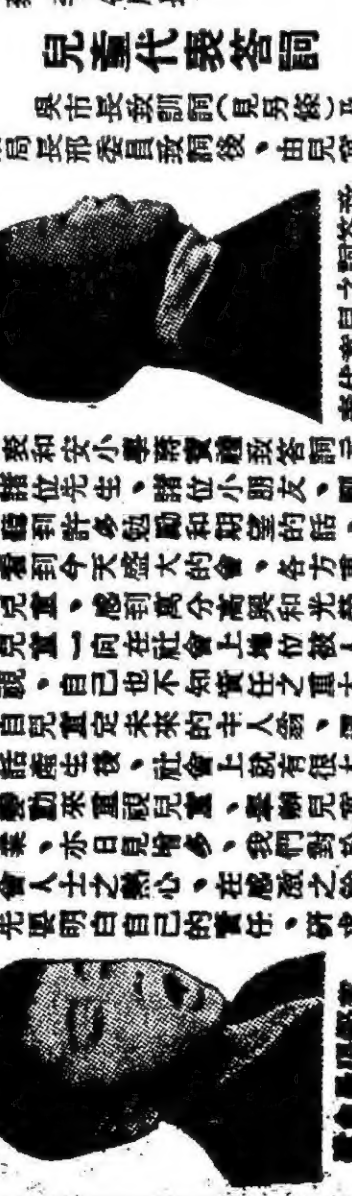 兒童代表答詞
吳市長致訓詞(見另條)
局長邢委員致詞後,由兒童
表和安小學蔣寶禮致答詞云
諸位先生,諸位小朋友,剛
聽到許多勉勵和期望的話,
看到今天盛大的會,各方重
兒童,感到萬分高興和光榮
兒童一向在社會上地位被人
視,自己也不知責任之重大
自兒童是未來的主人翁,這
話產生後,社會上就有很大
發動來重視兒童、舉辦兒童
業,亦日見增多,我們對於
會人士之熱心,在感激之餘
先要明白自己的責任,研究